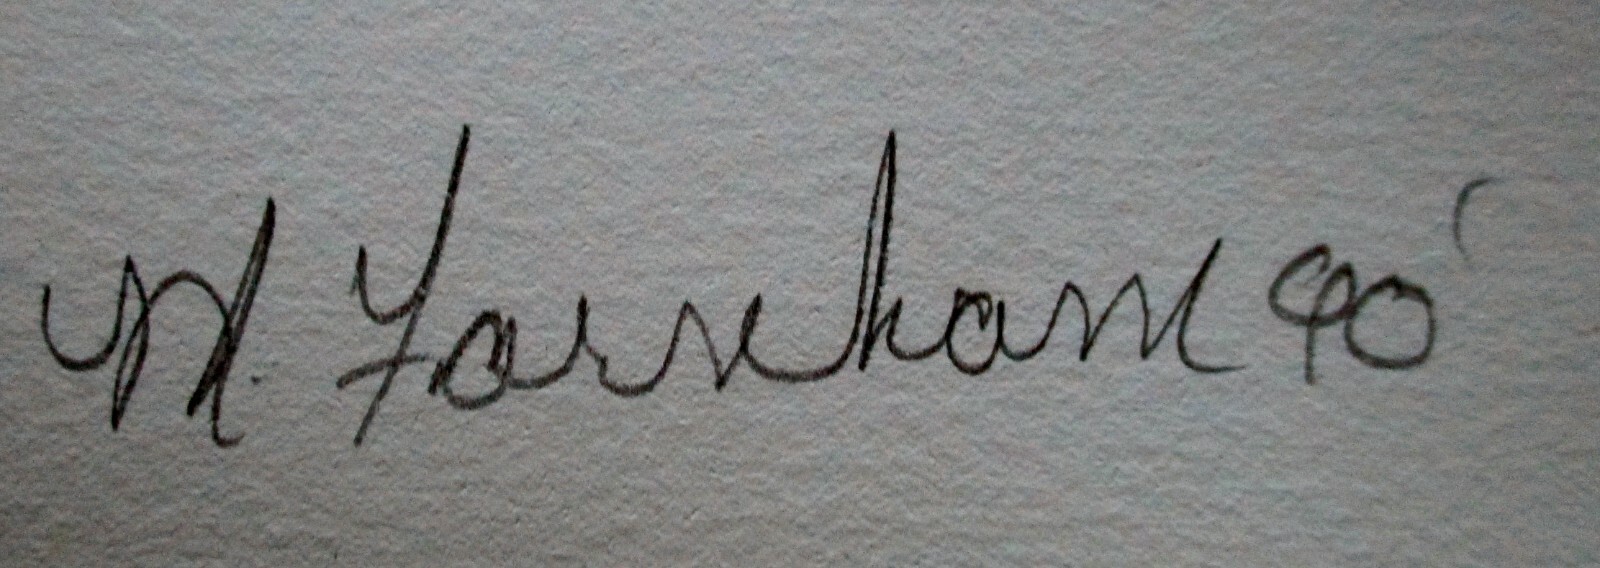 M. Farnham 90'